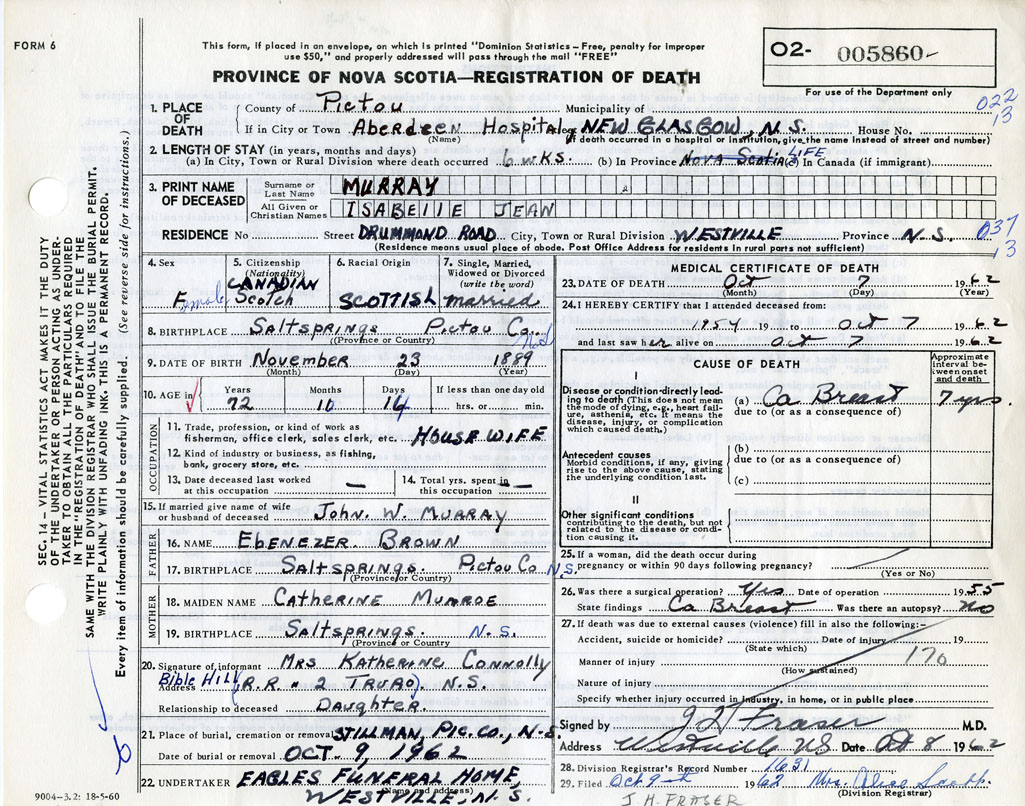 FORM 6
This form, if placed in an envelope, on which is printed "Dominion Statistics – Free, penalty for improper
use $50," and properly addressed will pass through the mail "FREE"
PROVINCE OF NOVA SCOTIA—REGISTRATION OF DEATH
02- 005860-
For use of the Department only
022
13
SEC. 14 – VITAL STATISTICS ACT MAKES IT THE DUTY
OF THE UNDERTAKER OR PERSON ACTING AS UNDER-
TAKER TO OBTAIN ALL THE PARTICULARS REQUIRED
IN THE "REGISTRATION OF DEATH" AND TO FILE THE
SAME WITH THE DIVISION REGISTRAR WHO SHALL ISSUE THE BURIAL PERMIT.
WRITE PLAINLY WITH UNFADING INK. THIS IS A PERMANENT RECORD.
Every item of information should be carefully supplied. (See reverse side for instructions.)
1. PLACE OF DEATH County of Pictou Municipality of
If in City or Town Aberdeen Hospital NEW GLASGOW, N.S. House No.
(Name) (If death occurred in a hospital or institution, give the name instead of street and number)
2. LENGTH OF STAY (in years, months and days)
(a) In City, Town or Rural Division where death occurred 6 wks. (b) In Province Nova Scotia LIFE (c) In Canada (if immigrant)
3. PRINT NAME OF DECEASED Surname or Last Name MURRAY
All Given or Christian Names ISABELLE JEAN
RESIDENCE No Street DRUMMOND ROAD City, Town or Rural Division WESTVILLE Province N.S.
037
13
(Residence means usual place of abode. Post Office Address for residents in rural parts not sufficient)
4. Sex Female
5. Citizenship (Nationality) CANADIAN Scotch
6. Racial Origin SCOTTISH
7. Single, Married, Widowed or Divorced (write the word) married
8. BIRTHPLACE Saltsprings Pictou Co. N.S.
(Province or Country)
9. DATE OF BIRTH November 23 1889
(Month) (Day) (Year)
10. AGE in Years 72 Months 10 Days 14 If less than one day old hrs. or min.
OCCUPATION
11. Trade, profession, or kind of work as
fisherman, office clerk, sales clerk, etc. HOUSE WIFE
12. Kind of industry or business, as fishing,
bank, grocery store, etc.
13. Date deceased last worked at this occupation —
14. Total yrs. spent in this occupation —
15. If married give name of wife
or husband of deceased John. W. Murray
FATHER
16. NAME EBENEZER BROWN
17. BIRTHPLACE SALTSPRINGS. PICTOU CO N.S.
(Province or Country)
MOTHER
18. MAIDEN NAME CATHERINE MUNROE
19. BIRTHPLACE SALTSPRINGS. N.S.
(Province or Country)
20. Signature of informant MRS KATHERINE CONNOLLY
Bible Hill
Address (R.R. # 2 TRURO). N.S.
Relationship to deceased Daughter.
21. Place of burial, cremation or removal STILLMAN, PIC. CO., N.S.
Date of burial or removal OCT. 9, 1962
22. UNDERTAKER EAGLES FUNERAL HOME,
(Name and address)
WESTVILLE, N.S.
9004–3.2: 18-5-60
MEDICAL CERTIFICATE OF DEATH
23. DATE OF DEATH Oct 7 1962
(Month) (Day) (Year)
24. I HEREBY CERTIFY that I attended deceased from:
1954 19 to Oct 7 1962
and last saw her alive on Oct 7 1962
CAUSE OF DEATH
Approximate interval between onset and death
I
Disease or condition directly leading to death (This does not mean the mode of dying, e.g., heart failure, asthenia, etc. It means the disease, injury, or complication which caused death.)
(a) Ca Breast 7 yrs.
due to (or as a consequence of)
Antecedent causes
Morbid conditions, if any, giving rise to the above cause, stating the underlying condition last.
(b)
due to (or as a consequence of)
(c)
II
Other significant conditions
contributing to the death, but not related to the disease or condition causing it.
25. If a woman, did the death occur during
pregnancy or within 90 days following pregnancy?
(Yes or No)
26. Was there a surgical operation? Yes Date of operation 1955
State findings Ca Breast Was there an autopsy? No
27. If death was due to external causes (violence) fill in also the following:–
Accident, suicide or homicide? Date of injury 19
(State which)
Manner of injury 170
(How sustained)
Nature of injury
Specify whether injury occurred in industry, in home, or in public place
Signed by J H Fraser M.D.
Address Westville NS Date Oct 8 1962
28. Division Registrar's Record Number 1631
29. Filed Oct 9th 1962 Mrs. Alice
(Division Registrar)
J. H. FRASER